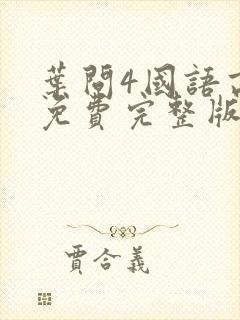 葉問4國語
免費完整版
賈合義